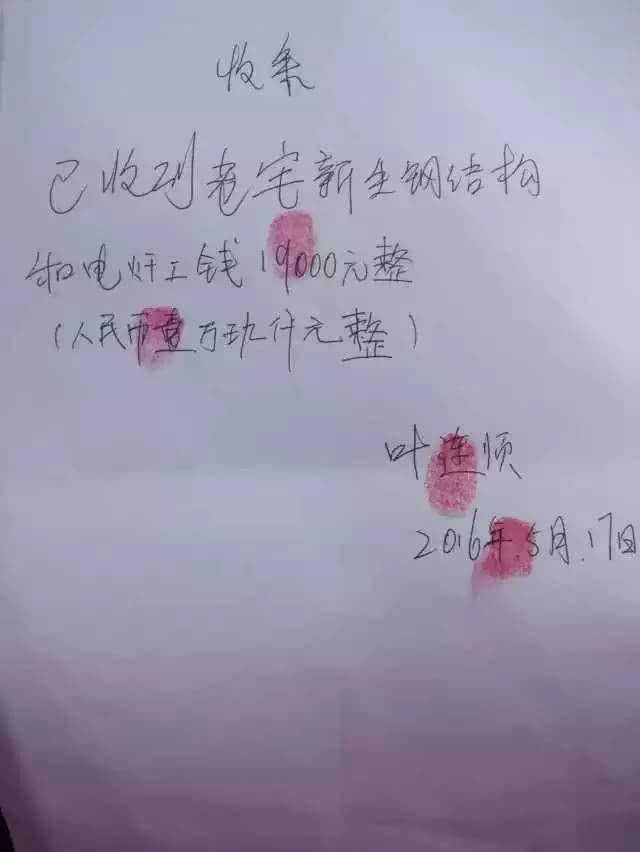 收条
已收到老宅新生钢结构
和电焊工钱19000元整
(人民币壹万玖仟元整)
叶连顺
2016年.5月.17日